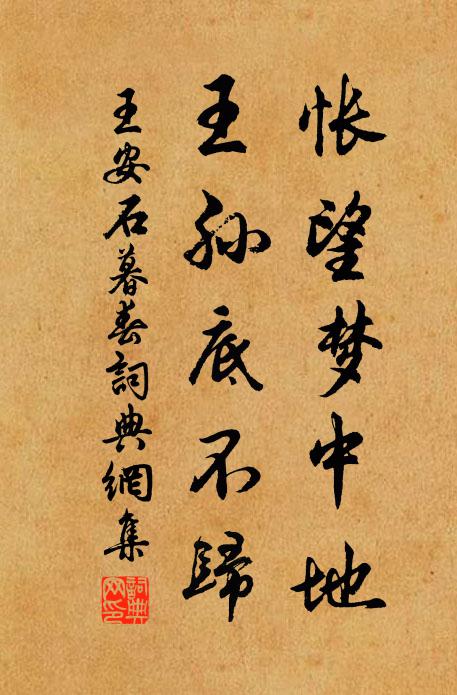 怅望梦中地
王孙底不歸
王安石暮春詞典網集
詞典
网印